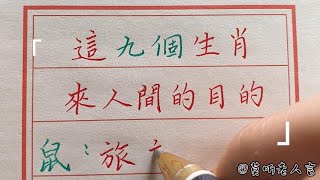 這九個生肖
來人間的目的
鼠：旅
老人言